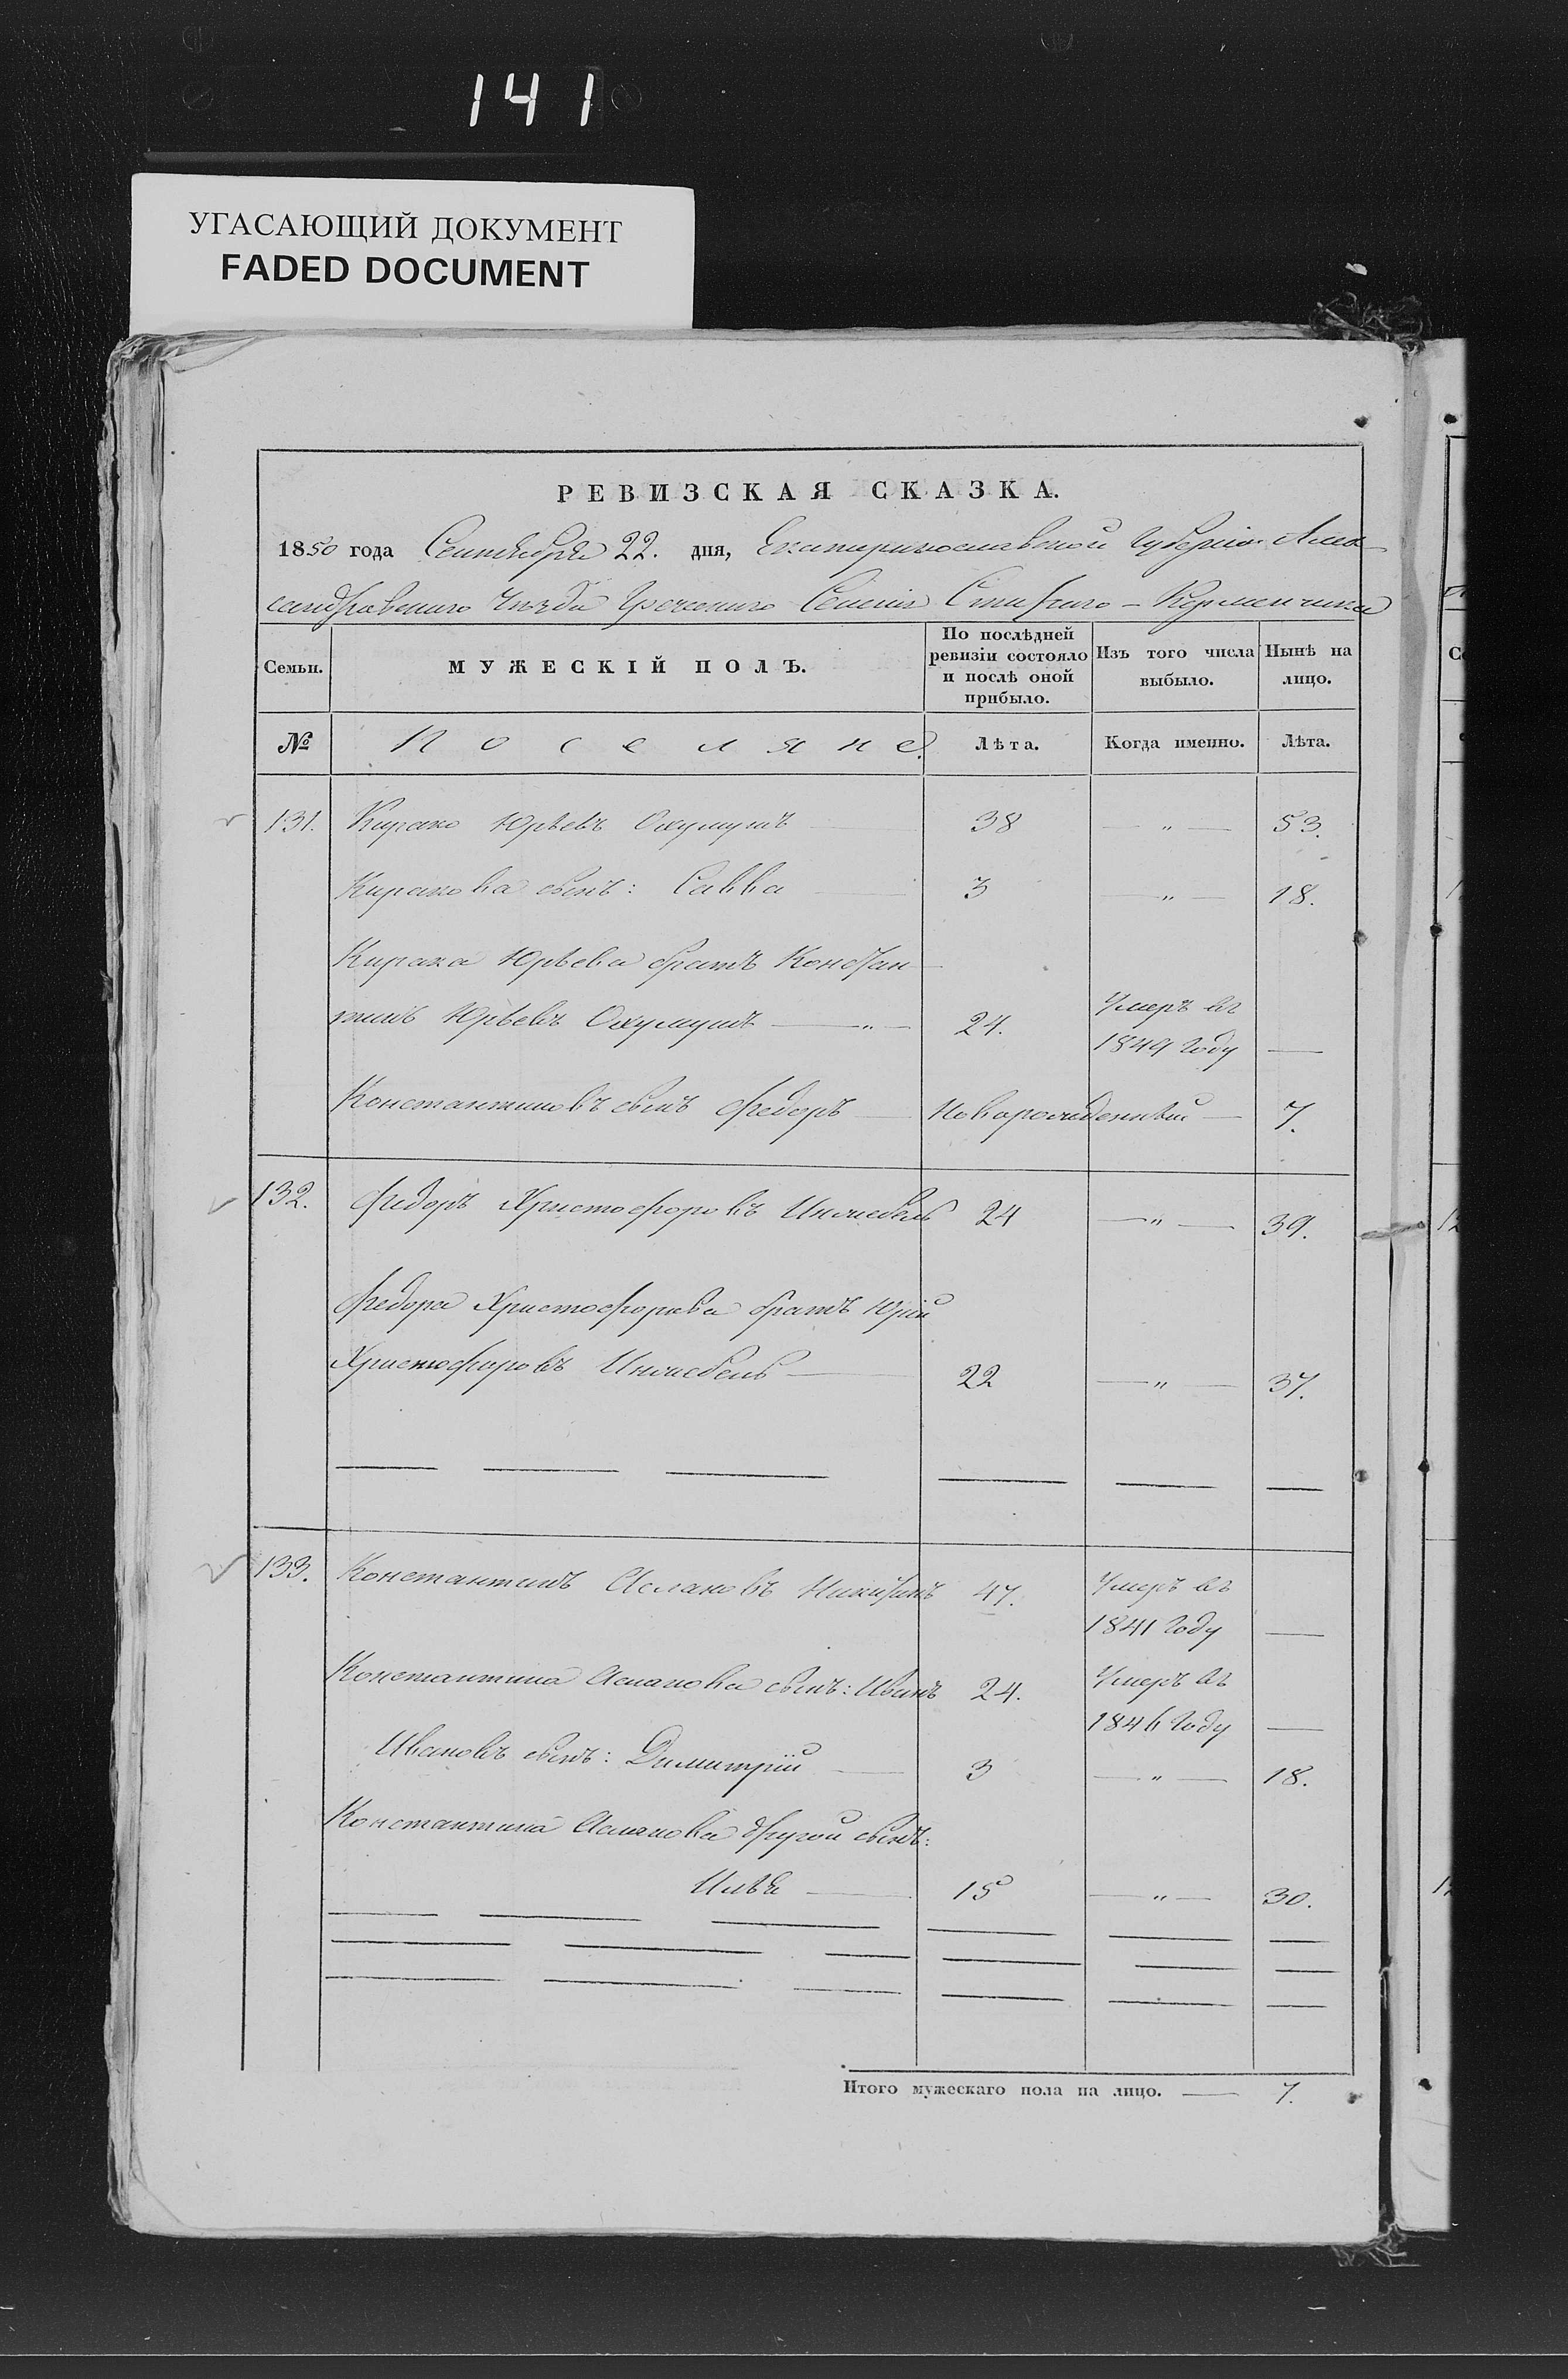 141
УГАСАЮЩИЙ ДОКУМЕНТ
FADED DOCUMENT
РЕВИЗСКАЯ СКАЗКА.
1850 года Сентября 22. дня, Екатеринославской Губернiи Алек-
сандровскаго Уѣзда Греческаго Селенiя Стараго-Керменчика
Семьи. МУЖЕСКІЙ ПОЛЪ. По послѣдней ревизіи состояло и послѣ оной прибыло. Изъ того числа выбыло. Нынѣ на лицо.
№ Поселяне. Лѣта. Когда именно. Лѣта.
131. Кирако Юрьевъ 38 — " — 53.
Киракова сынъ: Савва — 3 — " — 18.
Кирака Юрьева братъ Констан-
тинъ Юрьевъ — " — 24. Умеръ въ 1849 году —
Константиновъ сынъ Федоръ — Новорожденный — 7.
132. Федоръ Христофоровъ 24 — " — 39.
Федора Христофорова братъ Юрiй
Христофоровъ — 22 — " — 37.
133. Константинъ Аслановъ 47. Умеръ въ 1841 году —
Константина Асланова сынъ: Иванъ 24. Умеръ въ 1846 году —
Ивановъ сынъ: Димитрiй — 3 — " — 18.
Константина Асланова другой сынъ:
Илья — 15 — " — 30.
Итого мужескаго пола на лицо. — 7.